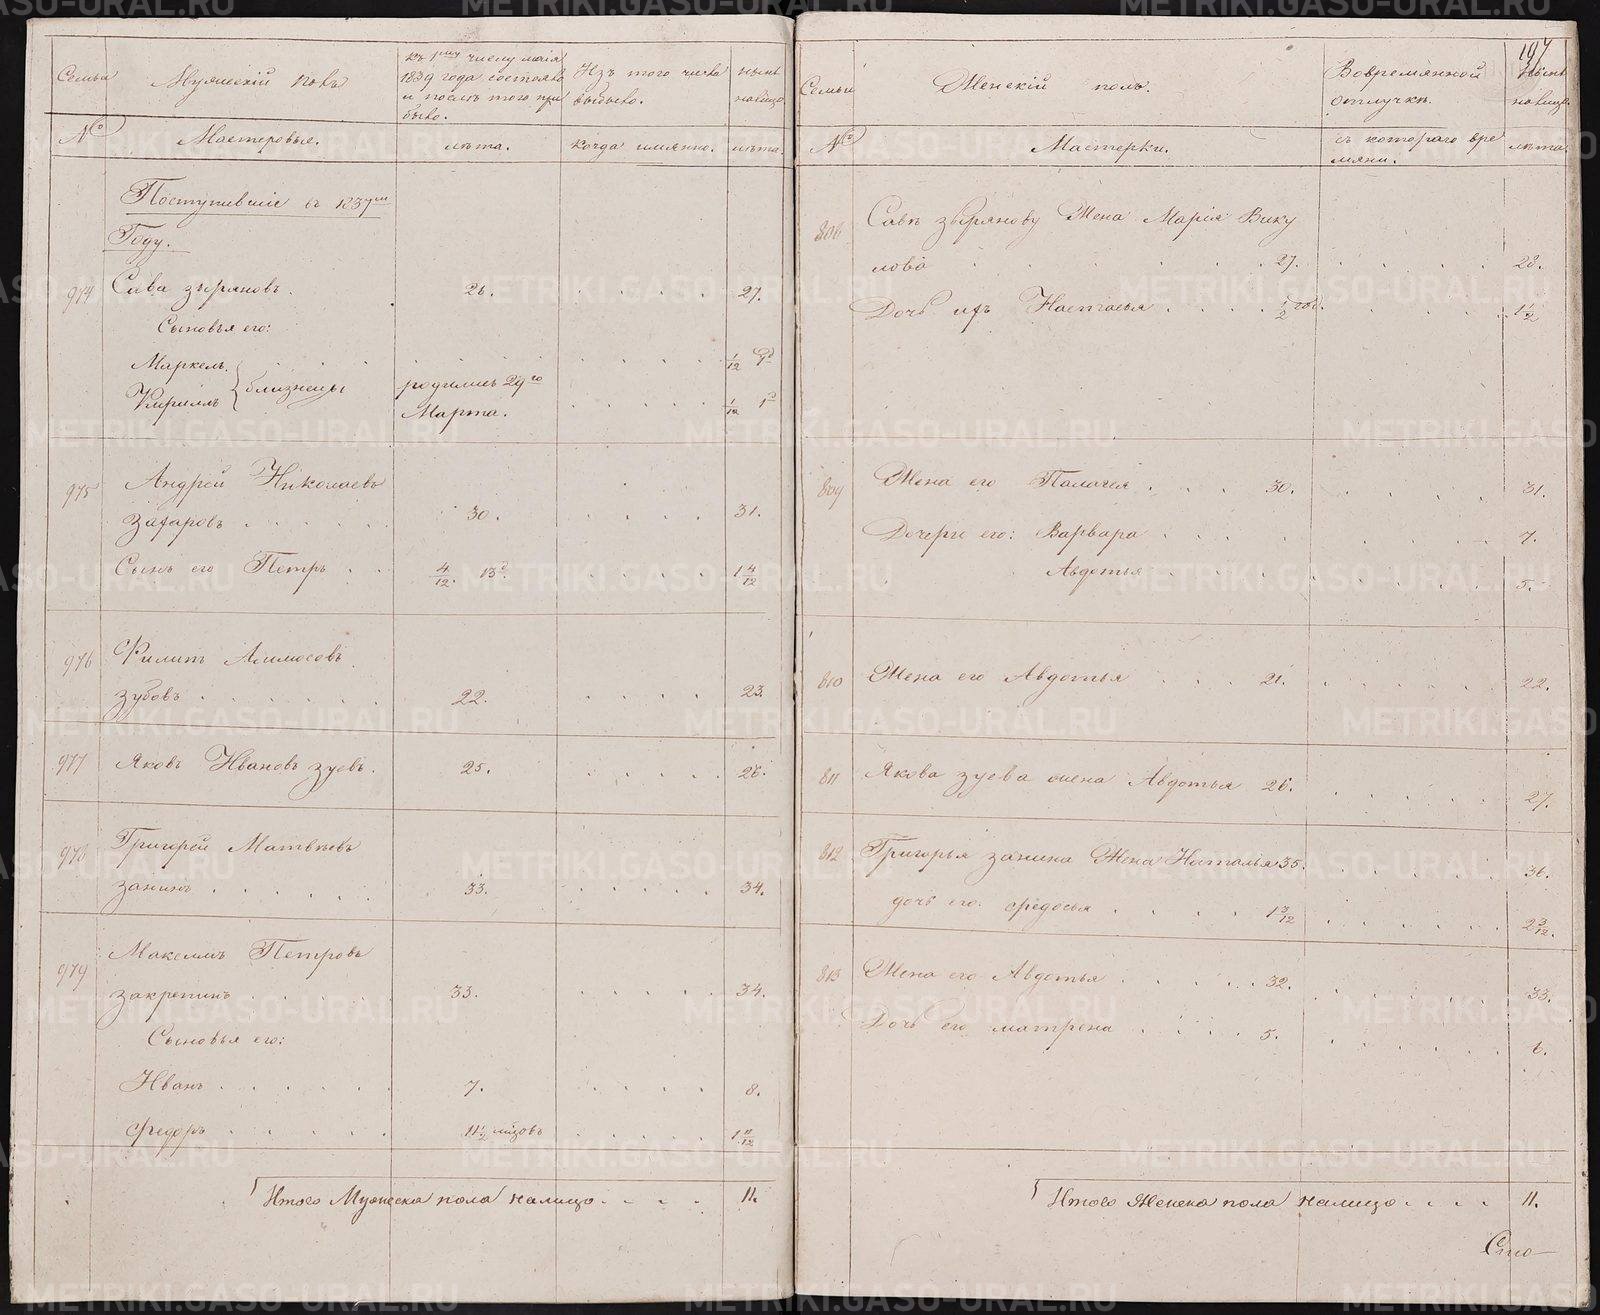 Семьи
Мужескій полъ
къ 1му числу маія
1839 года состояло
и послѣ того при
было.
Изъ того числа
выбыло.
нынѣ
налицо
№
Мастеровые.
лѣта.
когда имянно.
лѣта
Поступившіе съ 1837мъ
Году.
974
Сава зыряновъ.
26.
27.
Сыновья его:
Маркелъ.
1/12
Кирилъ
близнецы
родились 29го
Марта.
1/12
975
Андрей Николаевъ
Захаровъ
30.
31.
Сынъ его Петръ
4/12. 13д.
1 4/12
976
Филипъ
зубовъ
22.
23.
977
Яковъ Ивановъ зуевъ.
25.
26.
978
Григорей Матвѣевъ
занинъ
33.
34.
979
Максимъ Петровъ
закрепинъ
33.
34.
Сыновья его:
Иванъ
7.
8.
Федоръ
11 1/2
1 11/12
Итого Мужеска пола налицо
11.
197
Семьи
Женскій полъ.
Вовремянной
отлучкѣ.
Нынѣ
налицо.
№
Мастерки.
съ котораго вре
мяни.
лѣта
808
Савѣ зырянову Жена Марія Вику
лова
27.
28.
Дочь ихъ Настасья
1/2 год.
1 1/2
809
Жена его Палагея
30.
31.
Дочери его: Варвара
7.
Авдотья
5.
810
Жена его Авдотья
21.
22.
811
Якова зуева жена Авдотья 26.
27.
812
Григорья занина Жена Наталья 35.
36.
дочь его федосья
1 3/12
2 3/12.
813
Жена его Авдотья
32.
33.
Дочь его матрена
5.
6.
Итого Женска пола налицо
11.
METRIKI.GASO-URAL.RU